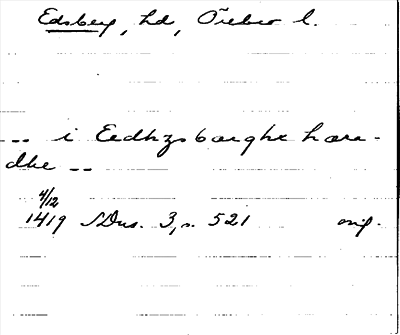 Edsberg, hd, Örebro l.
-- i Eedhzsbærghx hæra-
dhe --
4/12
1419 SDns. 3, s. 521 orig.